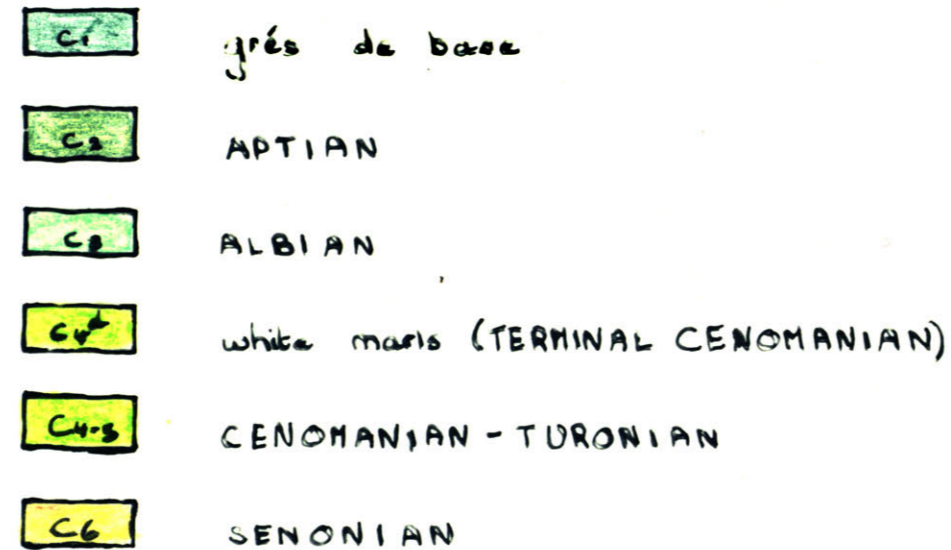 C1 grés de base
C2 APTIAN
C3 ALBIAN
C4d white marls (TERMINAL CENOMANIAN)
C4-5 CENOMANIAN - TURONIAN
C6 SENONIAN